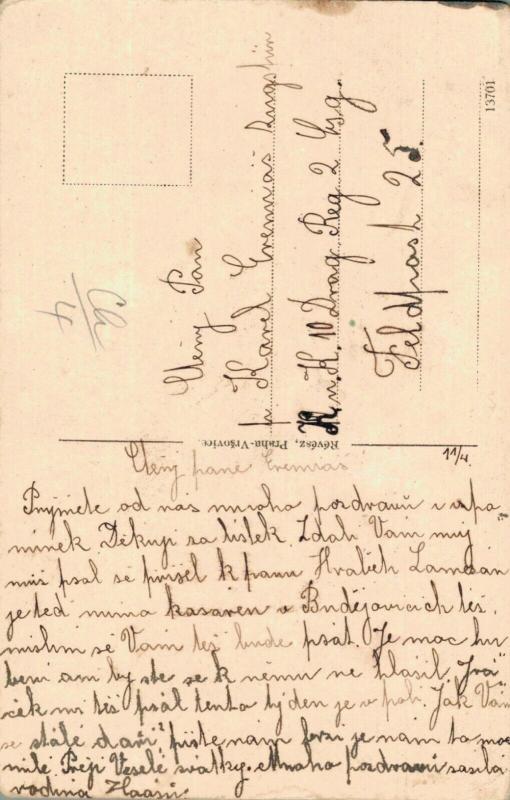 13701
Ctěný Pan
Karel Eremiáš
K.u.K. 10 Drag. Reg 2 Esg.
Feldpost 25.
Révész, Praha-Vršovice.
11/4.
Ctěný pane Eremiáš
Přijměte od nás mnoho pozdravů i vzpo
mínek Děkuji za lístek. Zdali Vám můj
muž psal že přišel k panu Hraběti
je teď mimo kasáren v Budějovicích též.
mislim že Vám též bude psát. Je moc
ani by ste se k němu ne hlasil.
mi též psal tento týden je v poli. Jak Vám
se stále daří? pište nám brzi je nám to moc
milé. Přeji Veselé svátky. Mnoho pozdravů zasílá
rodina